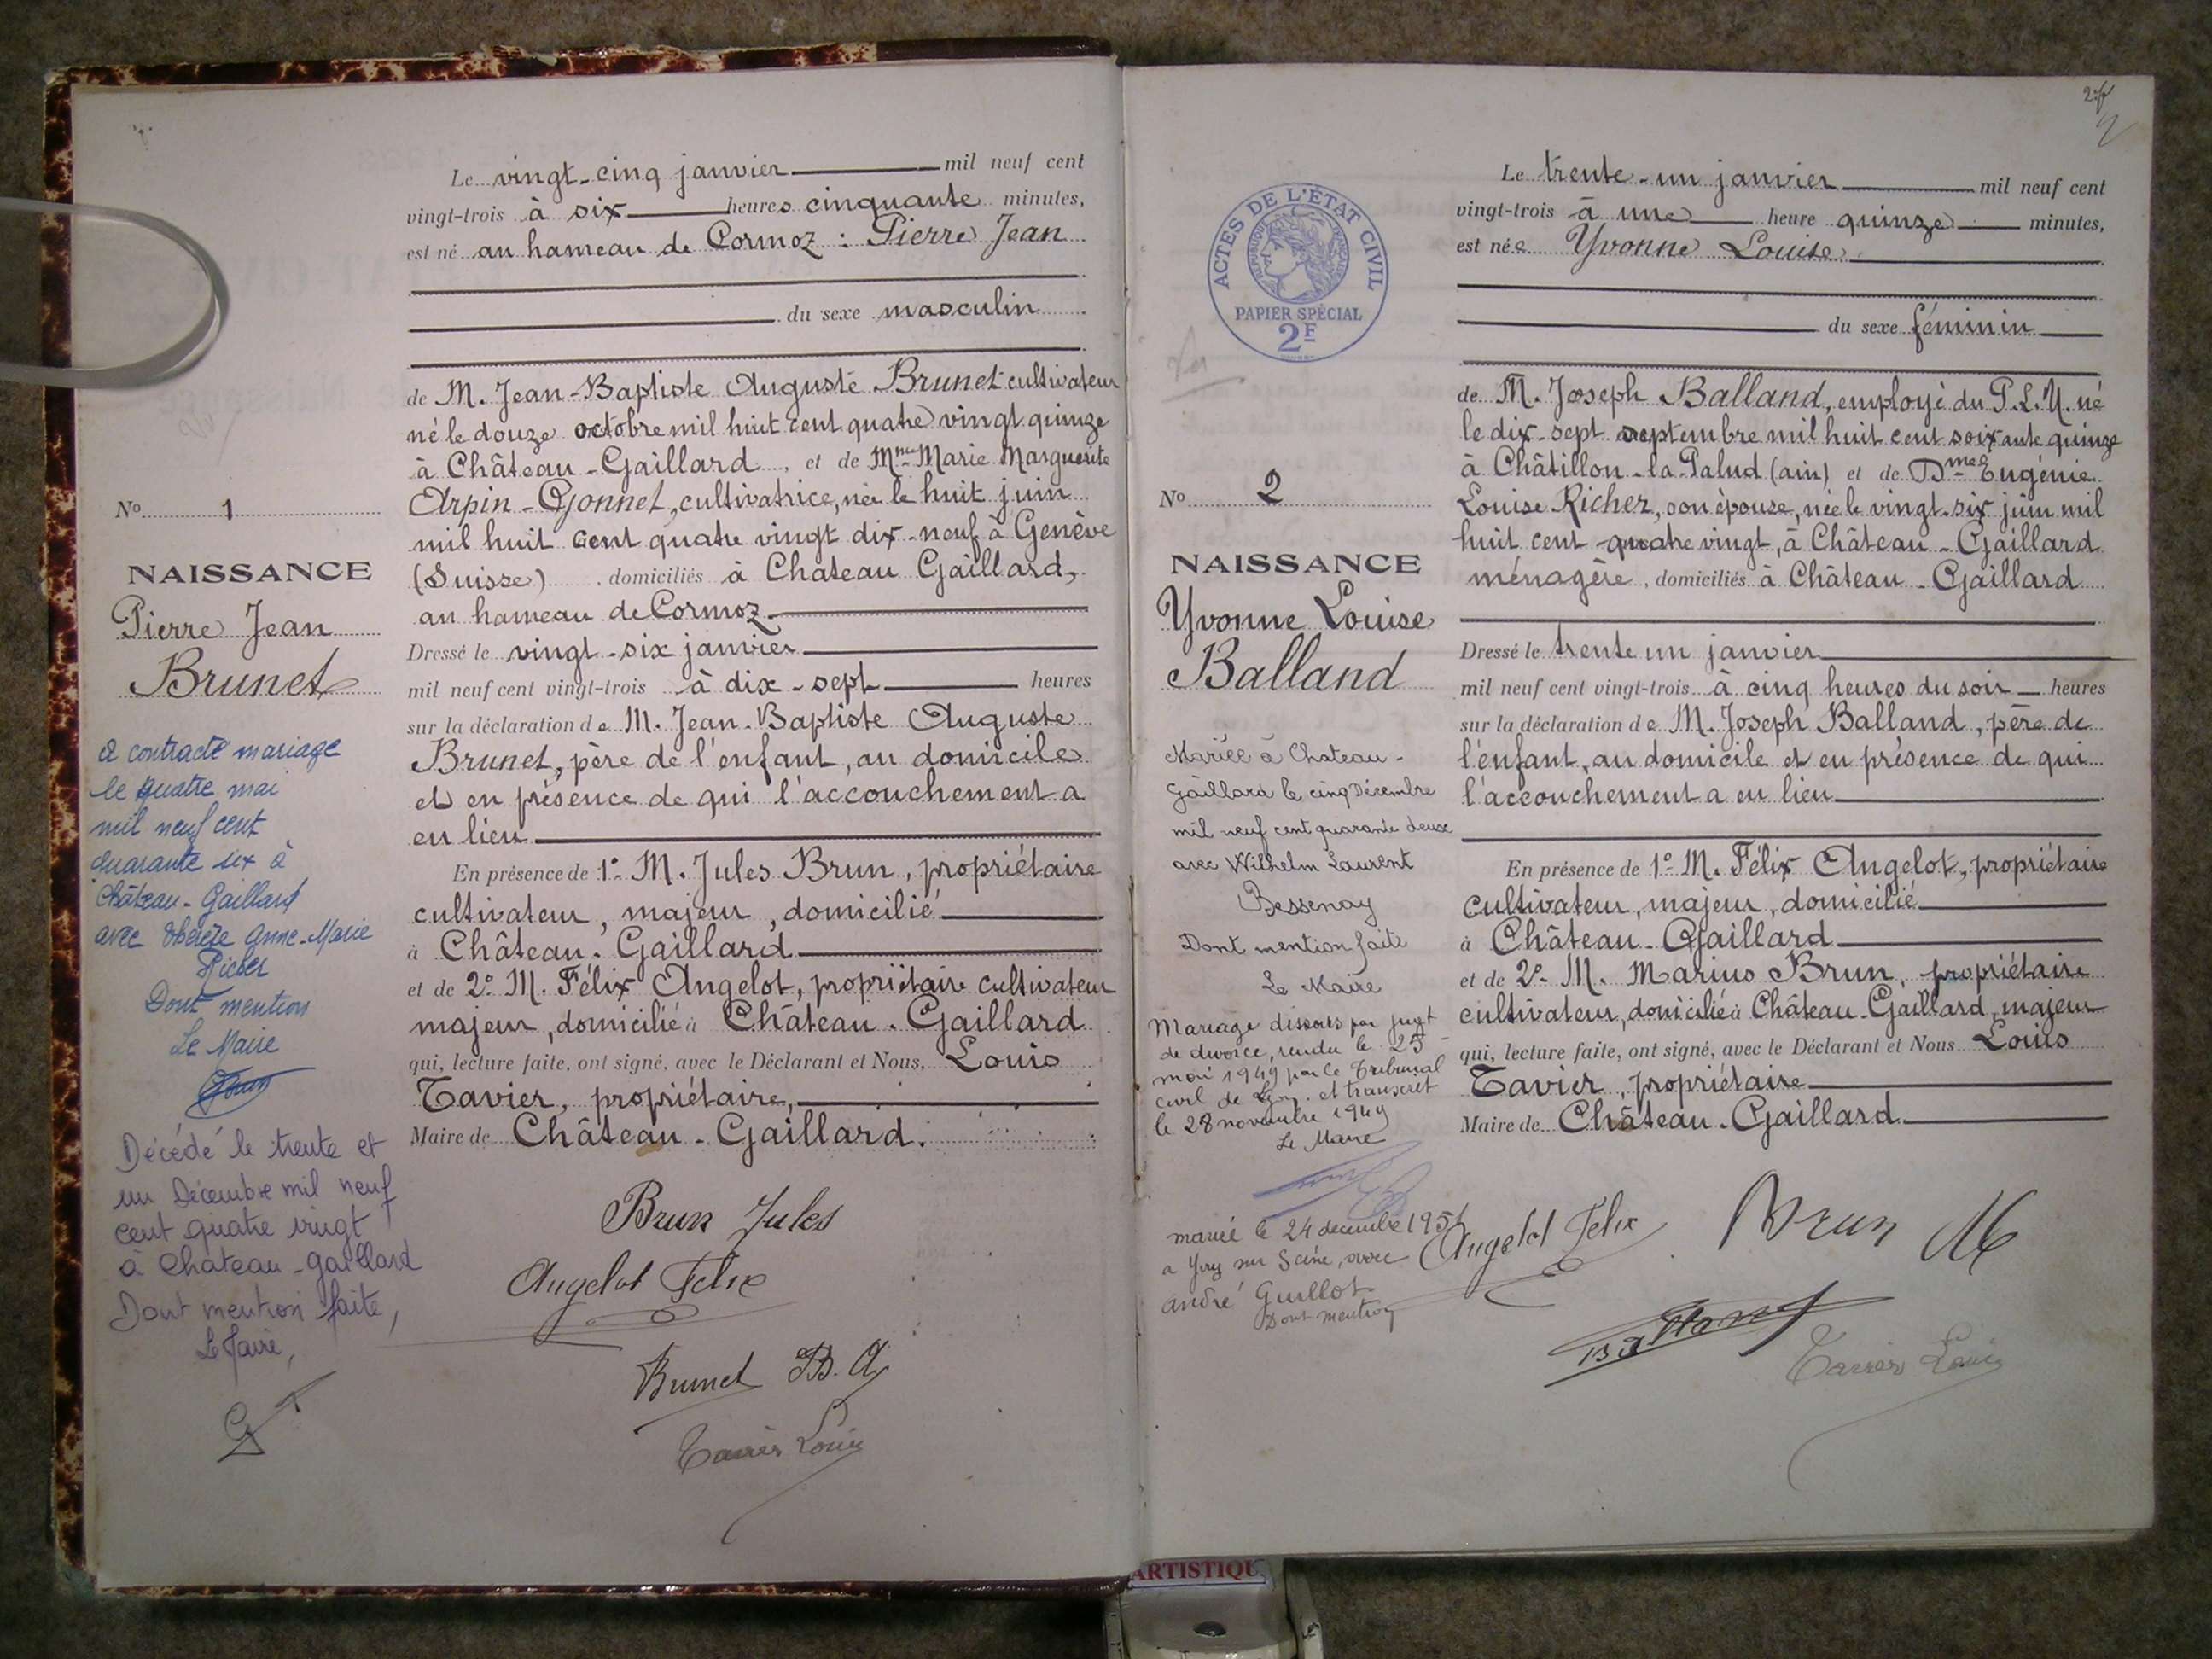 Le vingt-cinq janvier mil neuf cent
vingt-trois à six heures cinquante minutes,
est né au hameau de Cormoz : Pierre Jean
du sexe masculin
de M. Jean-Baptiste Auguste Brunet cultivateur
né le douze octobre mil huit cent quatre vingt quinze
à Château-Gaillard, et de Mme Marie Marguerite
Arpin-Gonnet, cultivatrice, née le huit juin
mil huit cent quatre vingt dix-neuf à Genève
(Suisse), domiciliés à Chateau Gaillard,
au hameau de Cormoz
Dressé le vingt-six janvier
mil neuf cent vingt-trois à dix-sept heures
sur la déclaration de M. Jean-Baptiste Auguste
Brunet, père de l'enfant, au domicile
et en présence de qui l'accouchement a
eu lieu
En présence de 1º M. Jules Brun, propriétaire
cultivateur, majeur, domicilié
à Château-Gaillard
et de 2º M. Félix Angelot, propriétaire cultivateur
majeur, domicilié à Château-Gaillard
qui, lecture faite, ont signé, avec le Déclarant et Nous, Louis
Tavier, propriétaire,
Maire de Château-Gaillard.
Brun Jules
Angelot Felix
Brunet B. A
Tavier Louis
No 1
NAISSANCE
Pierre Jean
Brunet
a contracté mariage
le quatre mai
mil neuf cent
quarante six à
Château-Gaillard
avec Thérèse Anne-Marie
Richer
Dont mention
Le Maire
Décédé le trente et
un Décembre mil neuf
cent quatre vingt
à Chateau-Gaillard
Dont mention faite,
Le Maire,
2
No 2
ACTES DE L'ÉTAT CIVIL
RÉPUBLIQUE FRANÇAISE
PAPIER SPÉCIAL
2F
NAISSANCE
Yvonne Louise
Balland
Mariée à Chateau-
Gaillard le cinq Décembre
mil neuf cent quarante deux
avec Wilhelm Laurent
Bessenay
Dont mention faite
Le Maire
Mariage dissous par jugt
de divorce, rendu le 25
mai 1949 par le Tribunal
civil de Lyon. et transcrit
le 28 novembre 1949
Le Maire
mariée le 24 decembre 1951
a Ivry sur Seine, avec
andré Guillot
Dont mention
Le trente-un janvier mil neuf cent
vingt-trois à une heure quinze minutes,
est née Yvonne Louise
du sexe féminin
de M. Joseph Balland, employé du P.L.M. né
le dix-sept septembre mil huit cent soixante quinze
à Châtillon-la-Palud (ain) et de Dme Eugénie
Louise Richer, son épouse, née le vingt-six juin mil
huit cent quatre vingt, à Château-Gaillard
ménagère, domiciliés à Château-Gaillard
Dressé le trente un janvier
mil neuf cent vingt-trois à cinq heures du soir heures
sur la déclaration de M. Joseph Balland, père de
l'enfant, au domicile et en présence de qui
l'accouchement a eu lieu
En présence de 1º M. Félix Angelot, propriétaire
cultivateur, majeur, domicilié
à Château-Gaillard
et de 2º M. Marius Brun, propriétaire
cultivateur, domicilié à Château-Gaillard, majeur
qui, lecture faite, ont signé, avec le Déclarant et Nous Louis
Tavier, propriétaire
Maire de Château-Gaillard
Angelot Felix
Brun M
Balland
Tavier Louis
ARTISTIQU